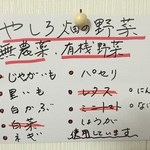 やしろ畑の野菜
無農薬 有機野菜
・じゃがいも ・パセリ
・里いも ・レタス ・にん
・白かぶ ・ミニトマト ・な
・白菜 ・しょうが
・ネギ 使用しています。